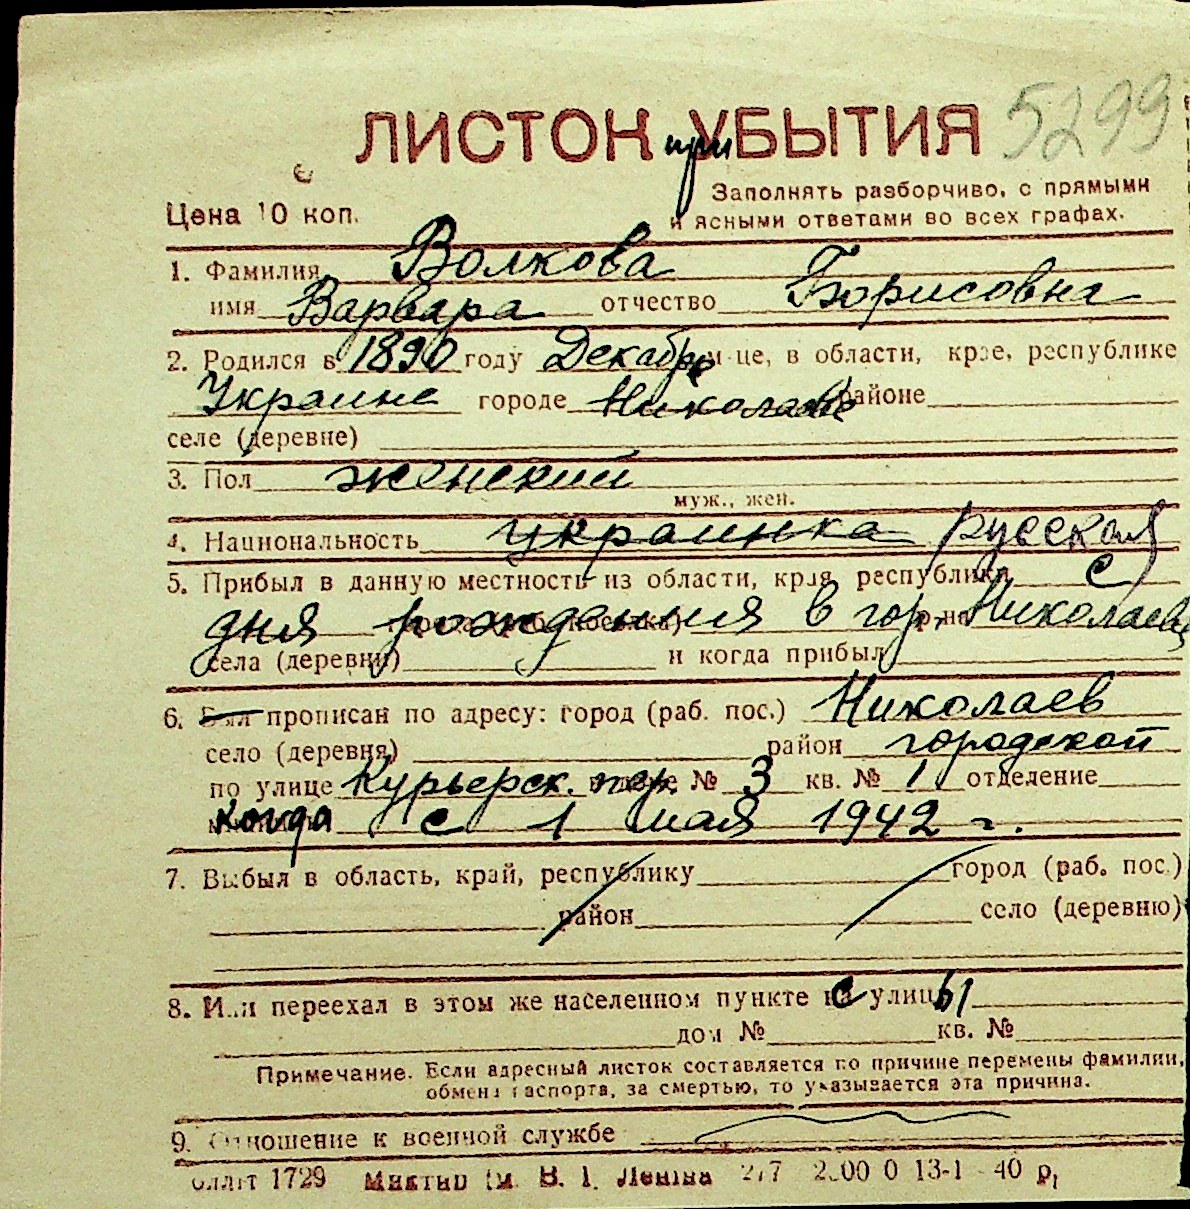 5299
ЛИСТОК УБЫТИЯ
при
Цена 10 коп.
Заполнять разборчиво, с прямыми
и ясными ответами во всех графах.
1. Фамилия Волкова
имя Варвара отчество Борисовна
2. Родился в 1890 году Декабре м-це, в области, крае, республике
Украине городе Николаеве районе
селе (деревне)
3. Пол женский
муж., жен.
4. Национальность украинка русская
5. Прибыл в данную местность из области, края, республики с
дня рождения в гор. Николаеве
села (деревни) и когда прибыл
6. Был прописан по адресу: город (раб. пос.) Николаев
село (деревня) район городской
по улице Курьерск. пер. в доме № 3 кв. № 1 отделение
когда с 1 мая 1942 г.
7. Выбыл в область, край, республику город (раб. пос.)
район село (деревню)
8. Или переехал в этом же населенном пункте с улицы
дом № кв. №
Примечание. Если адресный листок составляется по причине перемены фамилии,
обмена паспорта, за смертью, то указывается эта причина.
9. Отношение к военной службе
1729 им. В. І. Леніна 13-1 40 р.